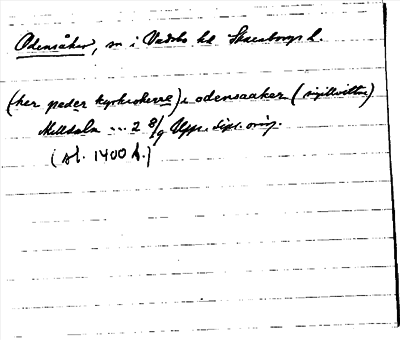 Odensåker, sn i Vadsbo hd Skaraborgs l.
(her peder kyrkoherre) i odensaaker (sigillvittne)
... 2 8/9 Upps. dipl. orig.
(sl. 1400 t.)